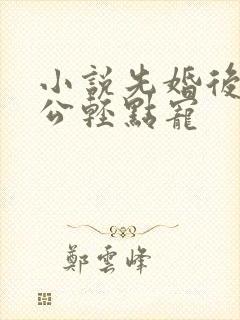 小說先婚後
公輕點寵
鄭雲峰